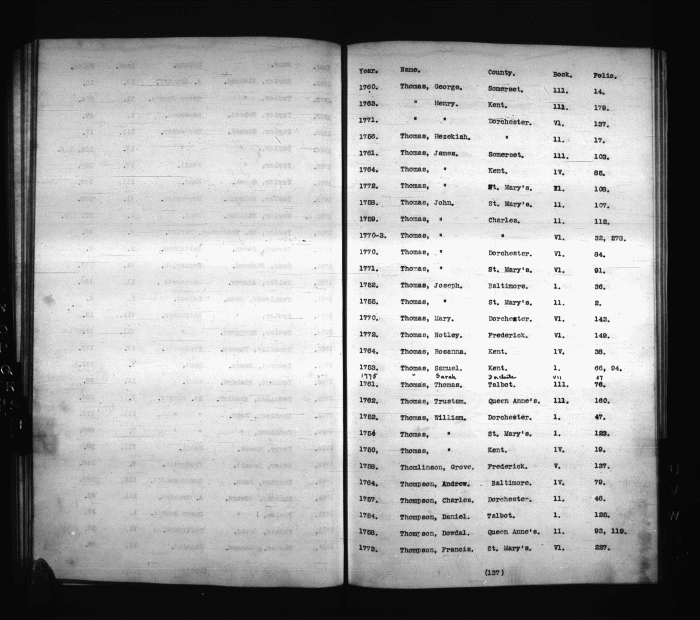 Year. Name. County. Book. Folio.
1760. Thomas, George. Somerset. 111. 14.
1763. " Henry. Kent. 111. 179.
1771. " " Dorchester. V1. 137.
1756. Thomas, Hezekiah. " 11. 17.
1761. Thomas, James. Somerset. 111. 103.
1764. Thomas, " Kent. 1V. 85.
1772. Thomas, " St. Mary's. V1. 108.
1758. Thomas, John. St. Mary's. 11. 107.
1759. Thomas, " Charles. 11. 112.
1770-3. Thomas, " " V1. 32, 278.
1770. Thomas, " Dorchester. V1. 84.
1771. Thomas, " St. Mary's. V1. 91.
1752. Thomas, Joseph. Baltimore. 1. 36.
1755. Thomas, " St. Mary's. 11. 2.
1770. Thomas, Mary. Dorchester. V1. 143.
1772. Thomas, Notley. Frederick. V1. 149.
1764. Thomas, Rosanna. Kent. 1V. 38.
1753. Thomas, Samuel. Kent. 1. 66, 94.
1775 " Sarah VII
1761. Thomas, Thomas. Talbot. 111. 76.
1762. Thomas, Trustam. Queen Anne's. 111. 160.
1752. Thomas, William. Dorchester. 1. 47.
1754 Thomas, " St. Mary's. 1. 123.
1750. Thomas, " Kent. 1V. 19.
1758. Thomlinson, Grove. Frederick. V. 137.
1764. Thompson, Andrew. Baltimore. 1V. 79.
1757. Thompson, Charles. Dorchester. 11. 46.
1754. Thompson, Daniel. Talbot. 1. 125.
1758. Thompson, Dowdal. Queen Anne's. 11. 93, 119.
1773. Thompson, Francis. St. Mary's. V1. 227.
(137)